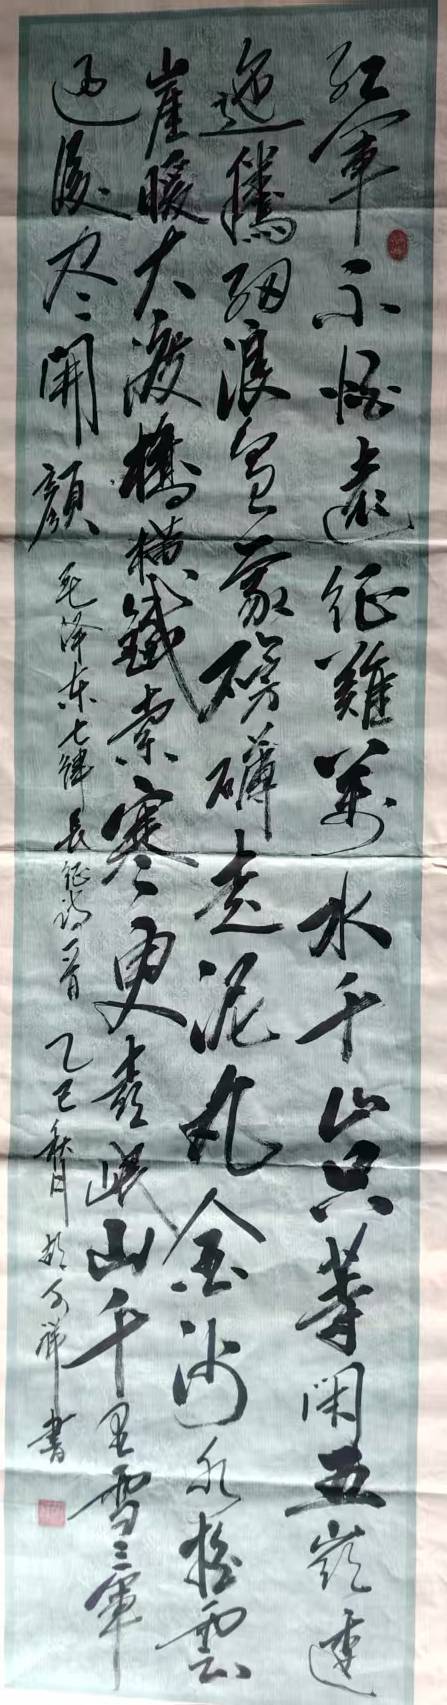 红軍不怕遠征難萬水千山只等闲五嶺逶
迤騰细浪烏蒙磅礴走泥丸金沙水拍雲
崖暖大渡橋横鐵索寒更喜岷山千里雪三軍
过後尽開顔
毛泽东七律長征诗一首 乙巳秋月 祥書